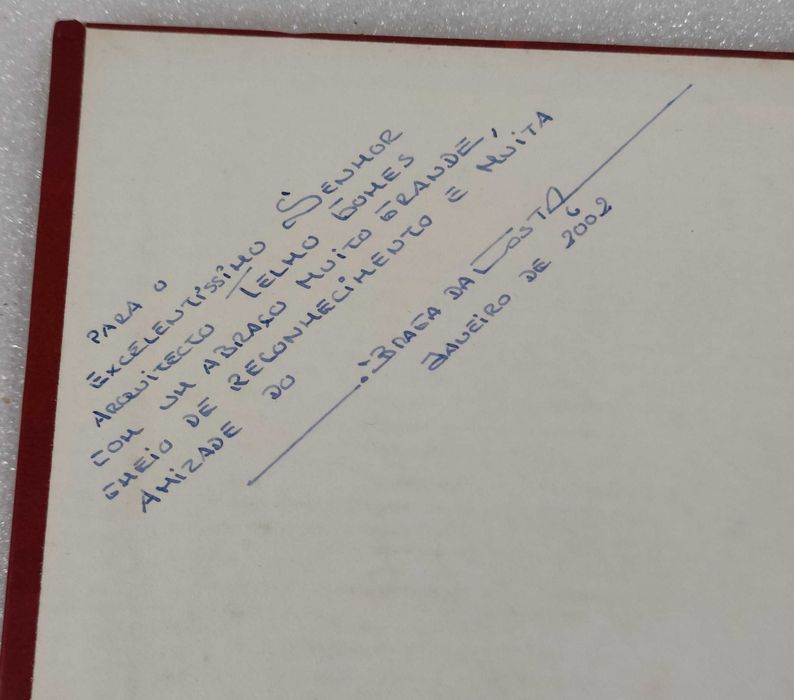 PARA O
EXCELENTÍSSIMO SENHOR
ARQUITECTO TELMO GOMES
COM UM ABRAÇO MUITO GRANDE,
CHEIO DE RECONHECIMENTO E MUITA
AMIZADE DO
BRAGA DA COSTA
JANEIRO DE 2002